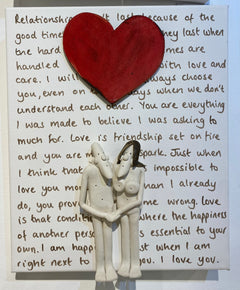 Relationsh t last because of the
good times y last when
the hard mes are
handled with love and
care. I will ways choose
you, even on ys when we don't
understand each other. You are everything
I was made to believe I was asking to
much for. Love is friendship set on fire
and you are spark. Just when
I think that impossible to
love you mor an I already
do, you prov me wrong. Love
is that condit where the happiness
of another perso essential to your
own. I am happ st when I am
right next to you. I love you.